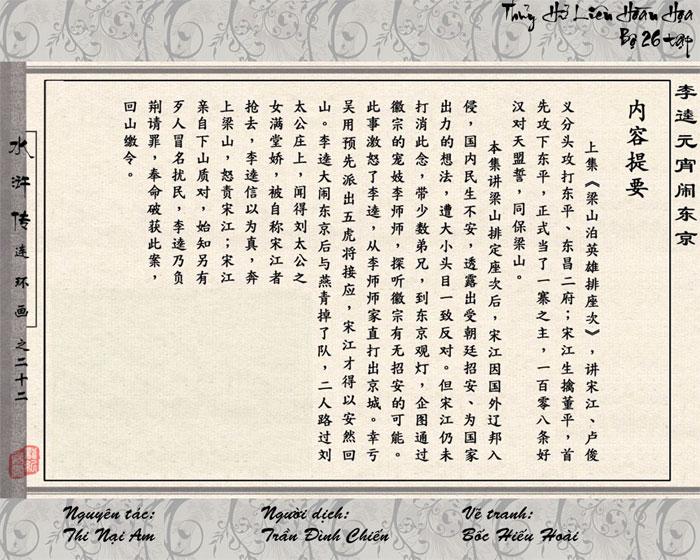 Thủy Hử Liên Hoàn Họa
Bộ 26 tập
李逵元宵闹东京
内容提要
上集《梁山泊英雄排座次》，讲宋江、卢俊
义分头攻打东平、东昌二府；宋江生擒董平，首
先攻下东平，正式当了一寨之主，一百零八条好
汉对天盟誓，同保梁山。
本集讲梁山排定座次后，宋江因国外辽邦入
侵，国内民生不安，透露出受朝廷招安、为国家
出力的想法，遭大小头目一致反对。但宋江仍未
打消此念，带少数弟兄，到东京观灯，企图通过
徽宗的宠妓李师师，探听徽宗有无招安的可能。
此事激怒了李逵，从李师师家直打出京城。幸亏
吴用预先派出五虎将接应，宋江才得以安然回
山。李逵大闹东京后与燕青掉了队，二人路过刘
太公庄上，闻得刘太公之
女满堂娇，被自称宋江者
抢去，李逵信以为真，奔
上梁山，怒责宋江；宋江
亲自下山质对，始知另有
歹人冒名扰民，李逵乃负
荆请罪，奉命破获此案，
回山缴令。
水浒传连环画之二十二
Nguyên tác:
Thi Nại Am
Người dịch:
Trần Đình Chiến
Vẽ tranh:
Bốc Hiếu Hoài